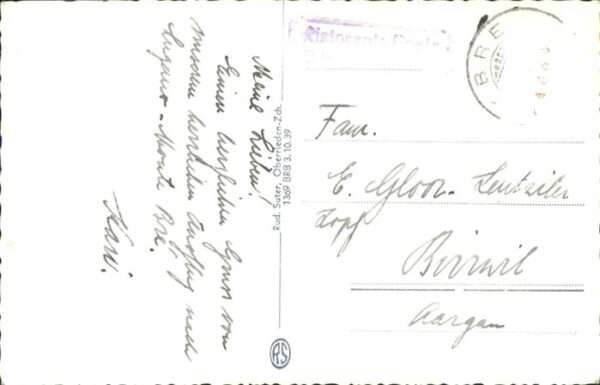 Meine Lieben!
Einen herzlichen Gruss von
unserem herrlichen Ausflug nach
Lugano - Monte Brè.
Rud. Suter, Oberrieden-Zch.
1369 BRB 3.10.39
RS
Ristorante
BRE
Fam.
E. Gloor-Leutwiler
Zopf
Birrwil
Aargau